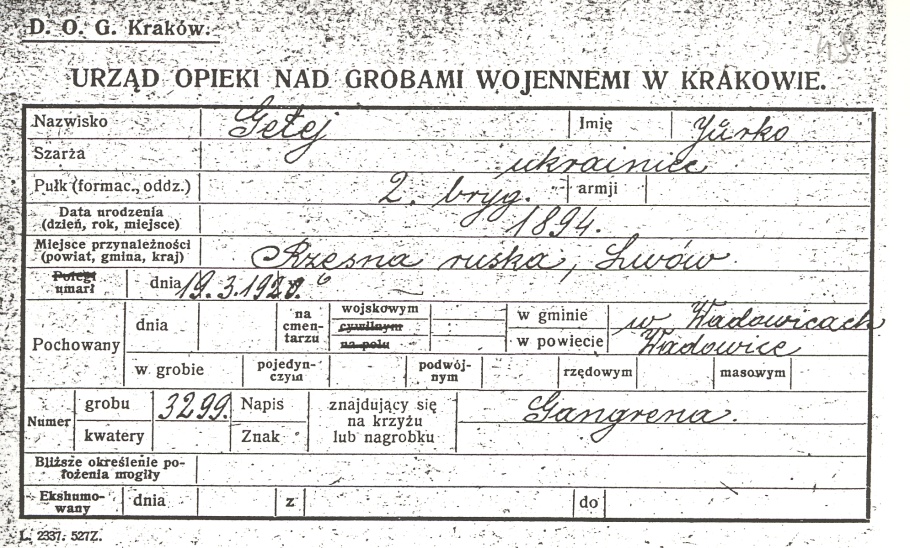 D. O. G. Kraków.
URZĄD OPIEKI NAD GROBAMI WOJENNEMI W KRAKOWIE.
Nazwisko Getej Imię Jurko
Szarża ukrainiec
Pułk (formac., oddz.) 2. bryg. armji
Data urodzenia (dzień, rok, miejsce) 1894.
Miejsce przynależności (powiat, gmina, kraj) Rzesna ruska, Lwów
Poległ
umarł dnia 19.3.1920.
Pochowany dnia na cmentarzu wojskowym cywilnym na polu w gminie w Wadowicach
w powiecie Wadowice
w grobie pojedyn-czym podwój-nym rzędowym masowym
Numer grobu 3299. Napis znajdujący się na krzyżu lub nagrobku Gangrena.
kwatery Znak
Bliższe określenie po-łożenia mogiły
Ekshumo-wany dnia z do
L. 2337. 527Z.